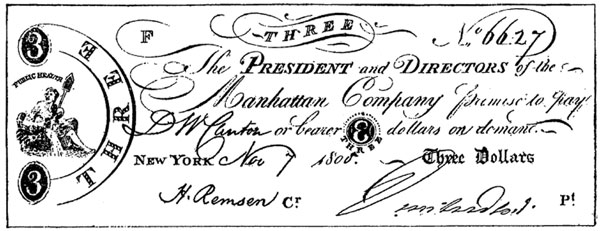 3
F
THREE
No. 6627
The PRESIDENT and DIRECTORS of the
PUBLIC HEALTH
THREE
Manhattan Company promise to pay
D W Clinton or bearer 3 THREE dollars on demand.
NEW YORK Nov 7 1800. Three Dollars
3
H. Remsen Cr.
Pt.